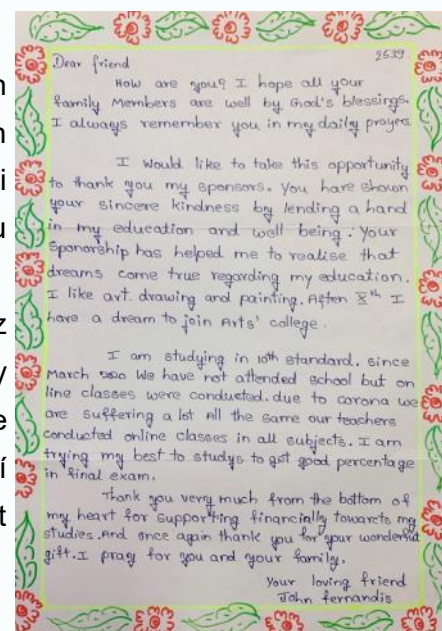 n
n
i
u
z
y
e
í
t
2539
Dear friend
How are you? I hope all your
family Members are well by God's blessings.
I always remember you in my daily prayers
I would like to take this opportunity
to thank you my sponsors. You have shown
your sincere kindness by lending a hand
in my education and well being. Your
Sponsorship has helped me to realise that
dreams come true regarding my education.
I like art. drawing and painting. After Xth I
have a dream to join Arts' college.
I am studying in 10th standard. since
March We have not attended school but on
line classes were conducted. due to carona we
are suffering a lot All the same our teachers
conducted online classes in all subjects. I am
trying my best to studys to got good percentage
in final exam.
Thank you very much from the bottom of
my heart for supporting financially my
studies. And once again thank you for your wonderful
gift. I pray for you and your family.
Your loving friend
John fernandis